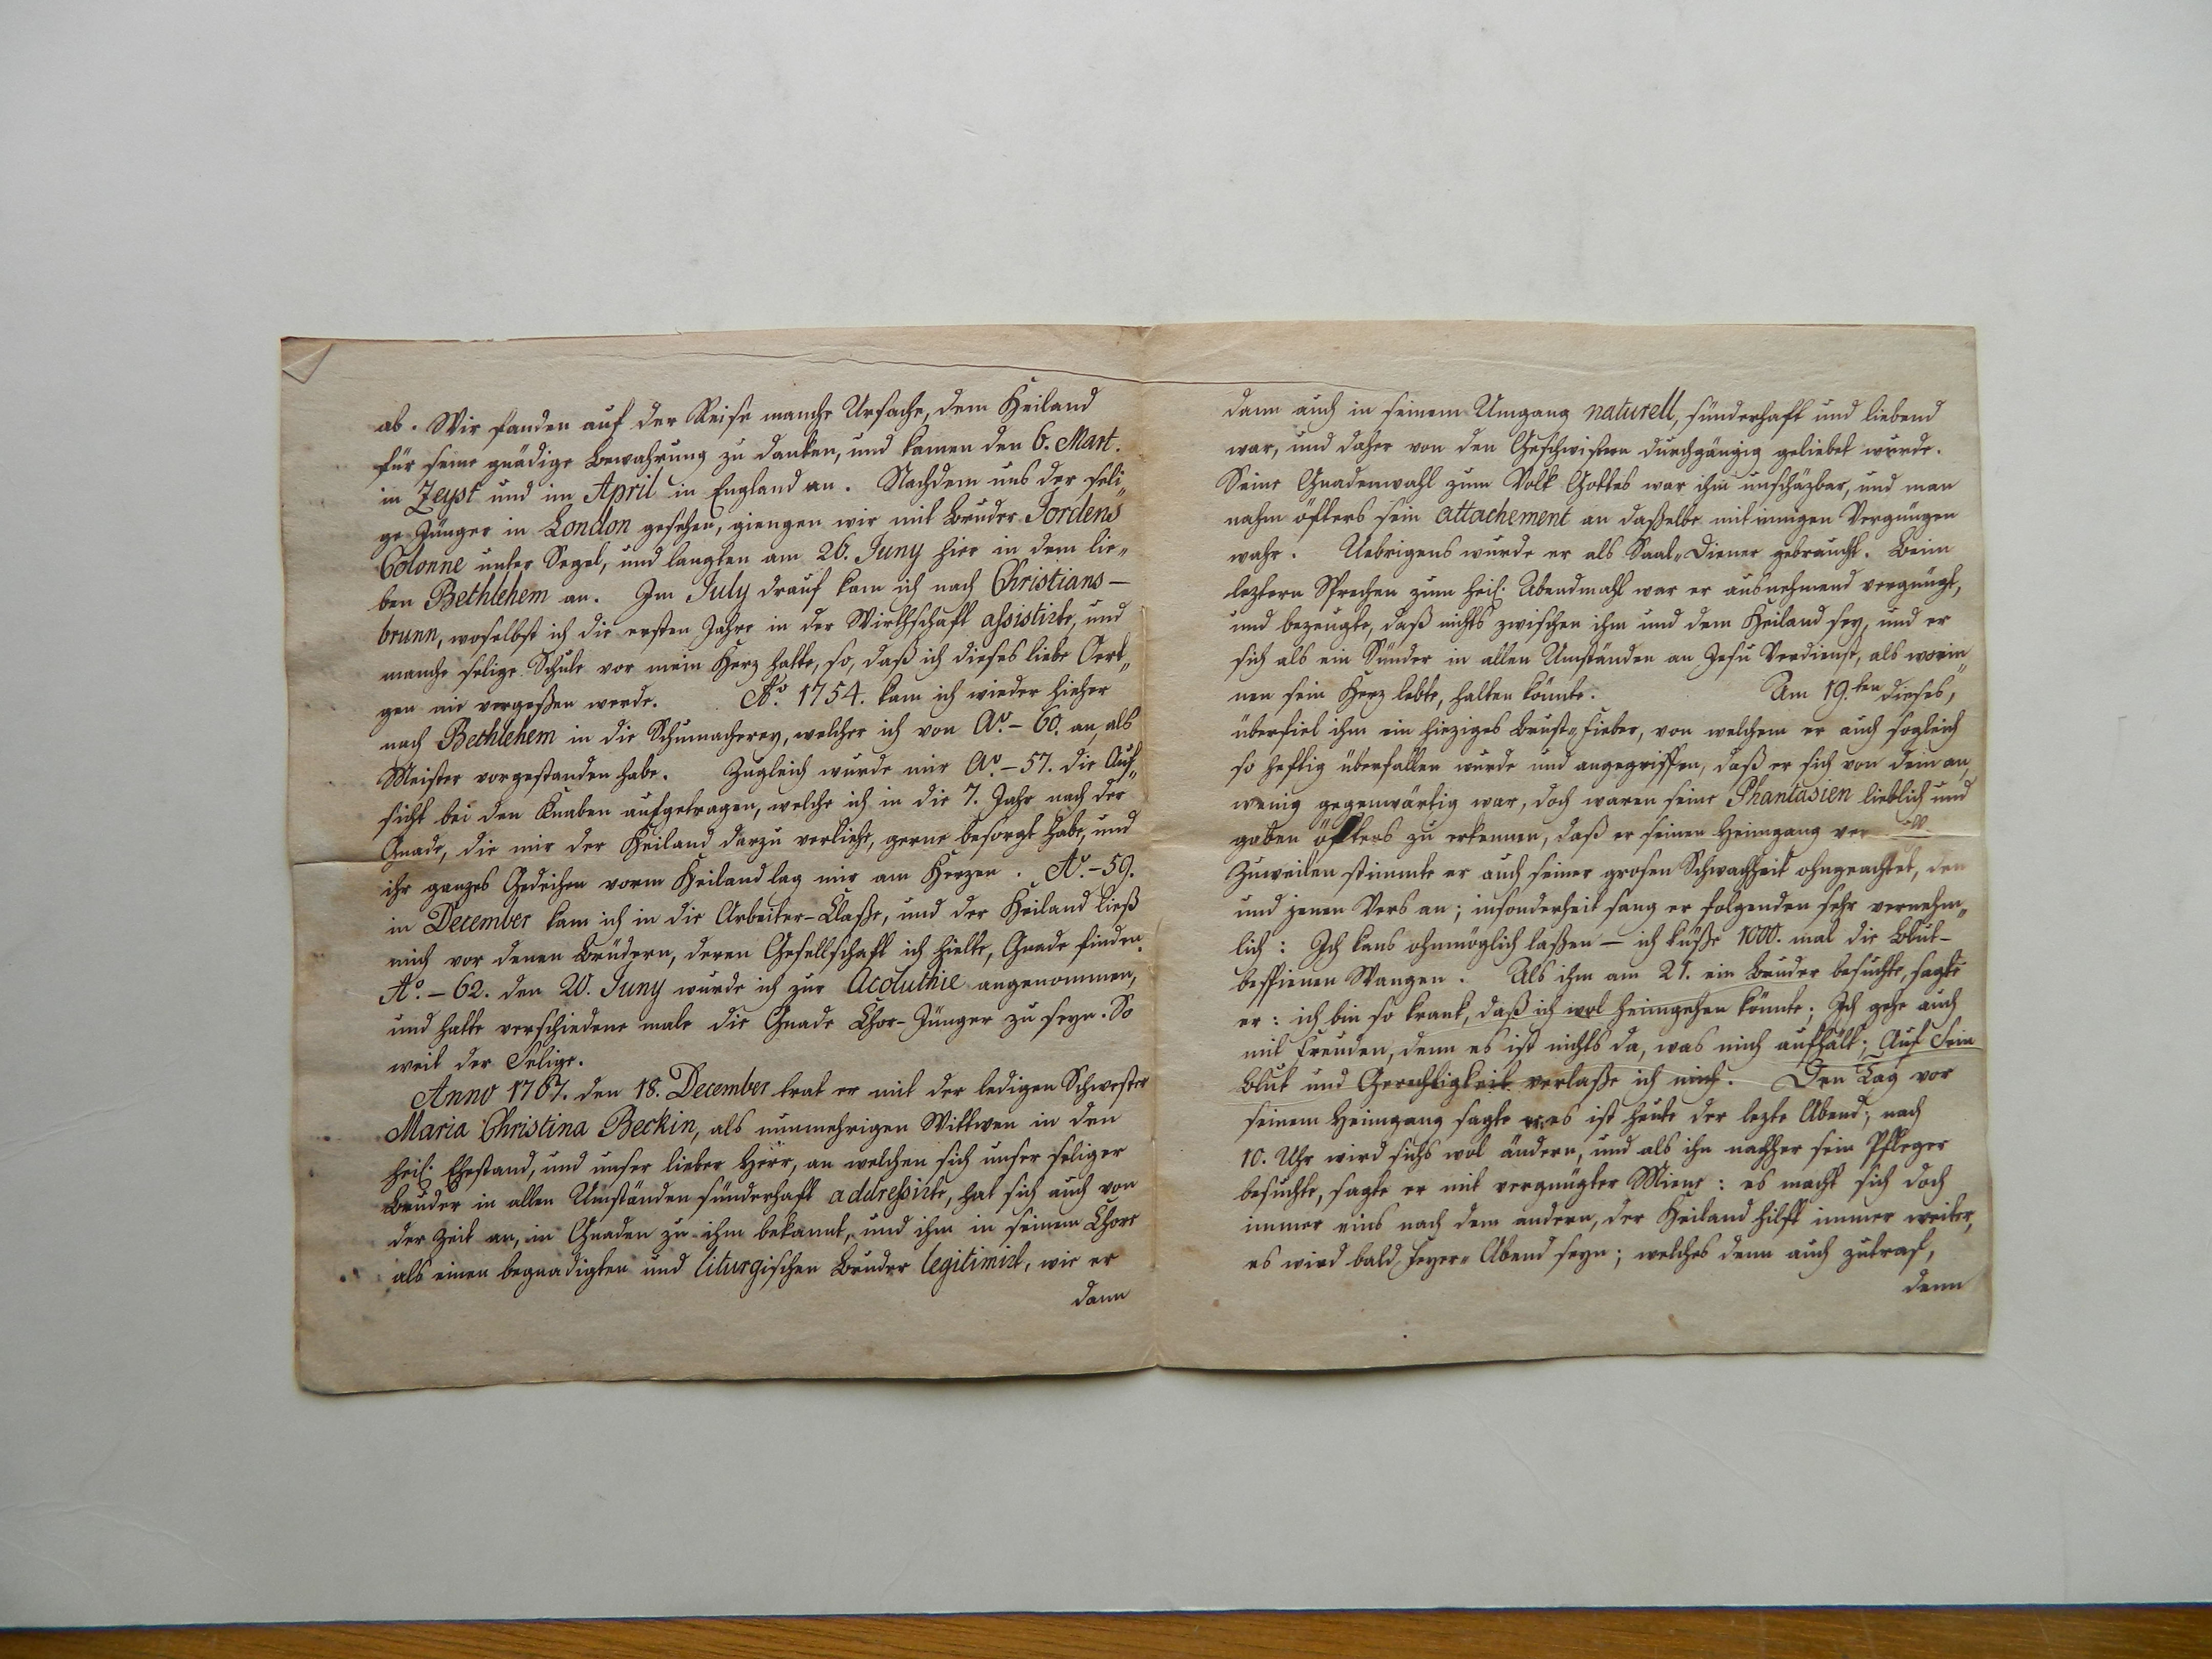 ab. Wir fanden auf der Reise manche Ursache, dem Heiland
für seine gnädige Bewahrung zu danken, und kamen den 6. Mart.
in Zeyst und im April in England an. Nachdem uns der seli„
ge Jünger in London gesehen, giengen wir mit Bruder Jordens
Colonne unter Segel, und langten am 26. Juny hier in dem lie„
ben Bethlehem an. Im July drauf kam ich nach Christians–
brunn, woselbst ich die ersten Jahre in der Wirthschaft assistirte, und
manche selige Schule vor mein Herz hatte, so, daß ich dieses liebe Oert„
gen nie vergeßen werde. Ao. 1754. kam ich wieder hieher
nach Bethlehem in die Schumacherey, welcher ich von Ao.–60. an, als
Meister vorgestanden habe. Zugleich wurde mir Ao.–57. die Auf„
sicht bei den Knaben aufgetragen, welche ich in die 7. Jahr nach der
Gnade, die mir der Heiland darzu verliehe, gerne besorgt habe, und
ihr ganzes Gedeihen vorm Heiland lag mir am Herzen. Ao.–59.
in December kam ich in die Arbeiter-Claße, und der Heiland ließ
mich vor denen Brüdern, deren Gesellschaft ich hielte, Gnade finden.
Ao.–62. den 20. Juny wurde ich zur Acoluthie angenommen,
und hatte verschiedene male die Gnade Chor-Jünger zu seyn. So
weit der Selige.
Anno 1767. den 18. December trat er mit der ledigen Schwester
Maria Christina Beckin, als nunmehrigen Wittwen in den
heil. Ehestand, und unser lieber Herr, an welchen sich unser seliger
Bruder in allen Umständen sünderhaft addressirte, hat sich auch von
der Zeit an, in Gnaden zu ihm bekannt, und ihn in seinem Chore
als einen begnadigten und liturgischen Bruder legitimirt, wie er
dann
dann auch in seinem Umgang naturell, sünderhaft und liebend
war, und daher von den Geschwistern durchgängig geliebet wurde.
Seine Gnadenwahl zum Volk Gottes war ihm unschäzbar, und man
nahm öfters sein attachement an daßelbe mit innigen Vergnügen
wahr. Uebrigens wurde er als Saal„Diener gebraucht. Beim
leztern Sprechen zum heil. Abendmahl war er ausnehmend vergnügt,
und bezeugte, daß nichts zwischen ihm und dem Heiland sey, und er
sich als ein Sünder in allen Umständen an Jesu Verdienst, als worin„
nen sein Herz lebte, halten könnte. Am 19.ten dieses,
überfiel ihm ein hieziges Brust„Fieber, von welchem er auch sogleich
so heftig überfallen wurde und angegriffen, daß er sich von dem an,
wenig gegenwärtig war, doch waren seine Phantasien lieblich und
gaben öfters zu erkennen, daß er seinen Heimgang ver
Zuweilen stimmte er auch seiner grosen Schwachheit ohngeachtet, den
und jenen Vers an; insonderheit sang er folgenden sehr vernehm„
lich: Ich kans ohnmöglich laßen – ich küße 1000. mal die Blut–
bespienen Wangen. Als ihm am 21. ein Bruder besuchte, sagte
er: ich bin so krank, daß ich wol heimgehen könnte; Ich gehe auch
mit Freuden, denn es ist nichts da, was mich aufhält; Auf Sein
Blut und Gerechtigkeit verlaße ich mich. Den Tag vor
seinem Heimgang sagte er: es ist heute der lezte Abend; nach
10. Uhr wird sichs wol ändern, und als ihn nachher sein Pfleger
besuchte, sagte er mit vergnügter Miene: es macht sich doch
immer eins nach dem andern, der Heiland hilft immer weiter,
es wird bald Feyer„Abend seyn; welches denn auch zutraf,
denn